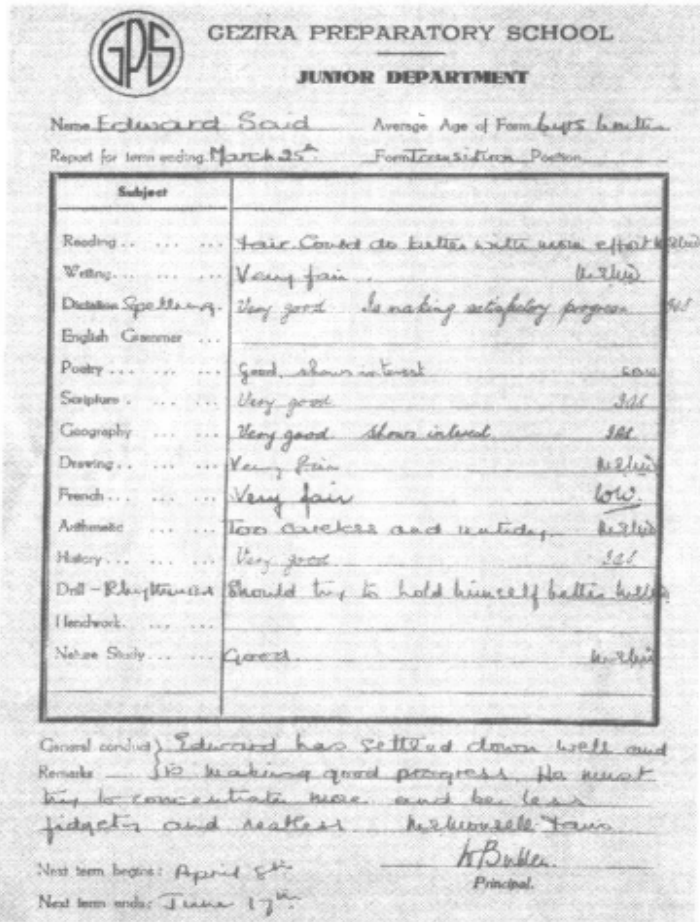 GPS
GEZIRA PREPARATORY SCHOOL
JUNIOR DEPARTMENT
Name Edward Said Average Age of Form 6 yrs 6 mths
Report for term ending March 25th Form Transition Position
Subject
Reading Fair. Could do better with more effort
Writing Very fair.
Dictation Spelling. Very good Is making satisfactory progress
English Grammar
Poetry Good. shows interest
Scripture Very good
Geography Very good shows interest
Drawing Very fair
French Very fair
Arithmetic Too careless and untidy
History Very good
Drill - Should try to hold himself better
Handwork
Nature Study Good.
General conduct } Edward has settled down well and
Remarks } is making good progress. He must
try to concentrate more and be less
fidgety and restless
Principal.
Next term begins: April 8th
Next term ends: June 17th